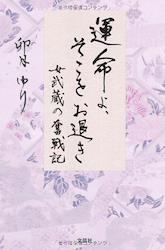 運命よ、
そこをお退き
女武蔵の奮戦記
卯月ゆり
文芸社